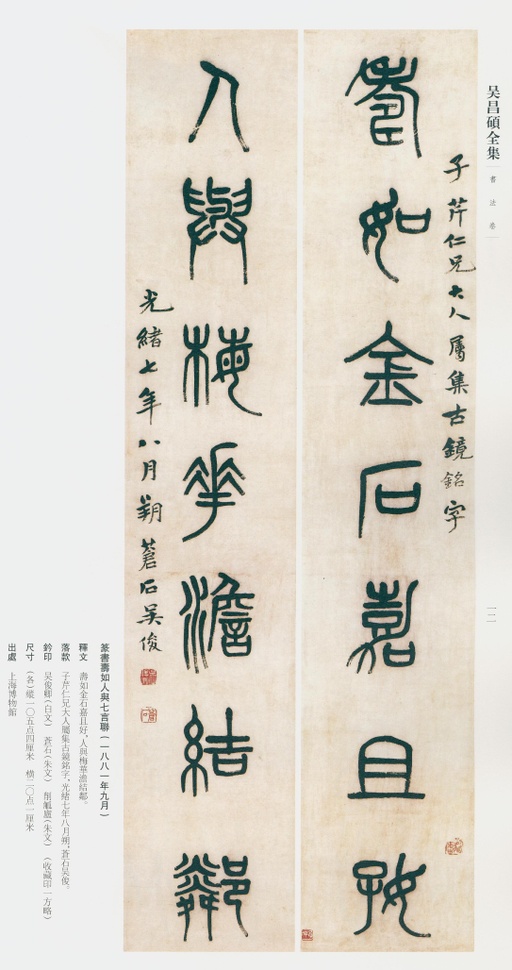 吴昌碩全集
書法卷
一二
子芹仁兄大人屬集古鏡銘字
壽如金石嘉且好
人與梅華澹結鄰
光緒七年八月朔蒼石吴俊
篆書壽如人與七言聯(一八八一年九月)
釋文 壽如金石嘉且好,人與梅華澹結鄰。
落款 子芹仁兄大人屬集古鏡銘字,光緒七年八月朔,蒼石吴俊。
鈐印 吴俊卿(白文) 蒼石(朱文) 削觚廬(朱文) (收藏印一方略)
尺寸 (各)縱一〇五点四厘米 横二〇点一厘米
出處 上海博物館